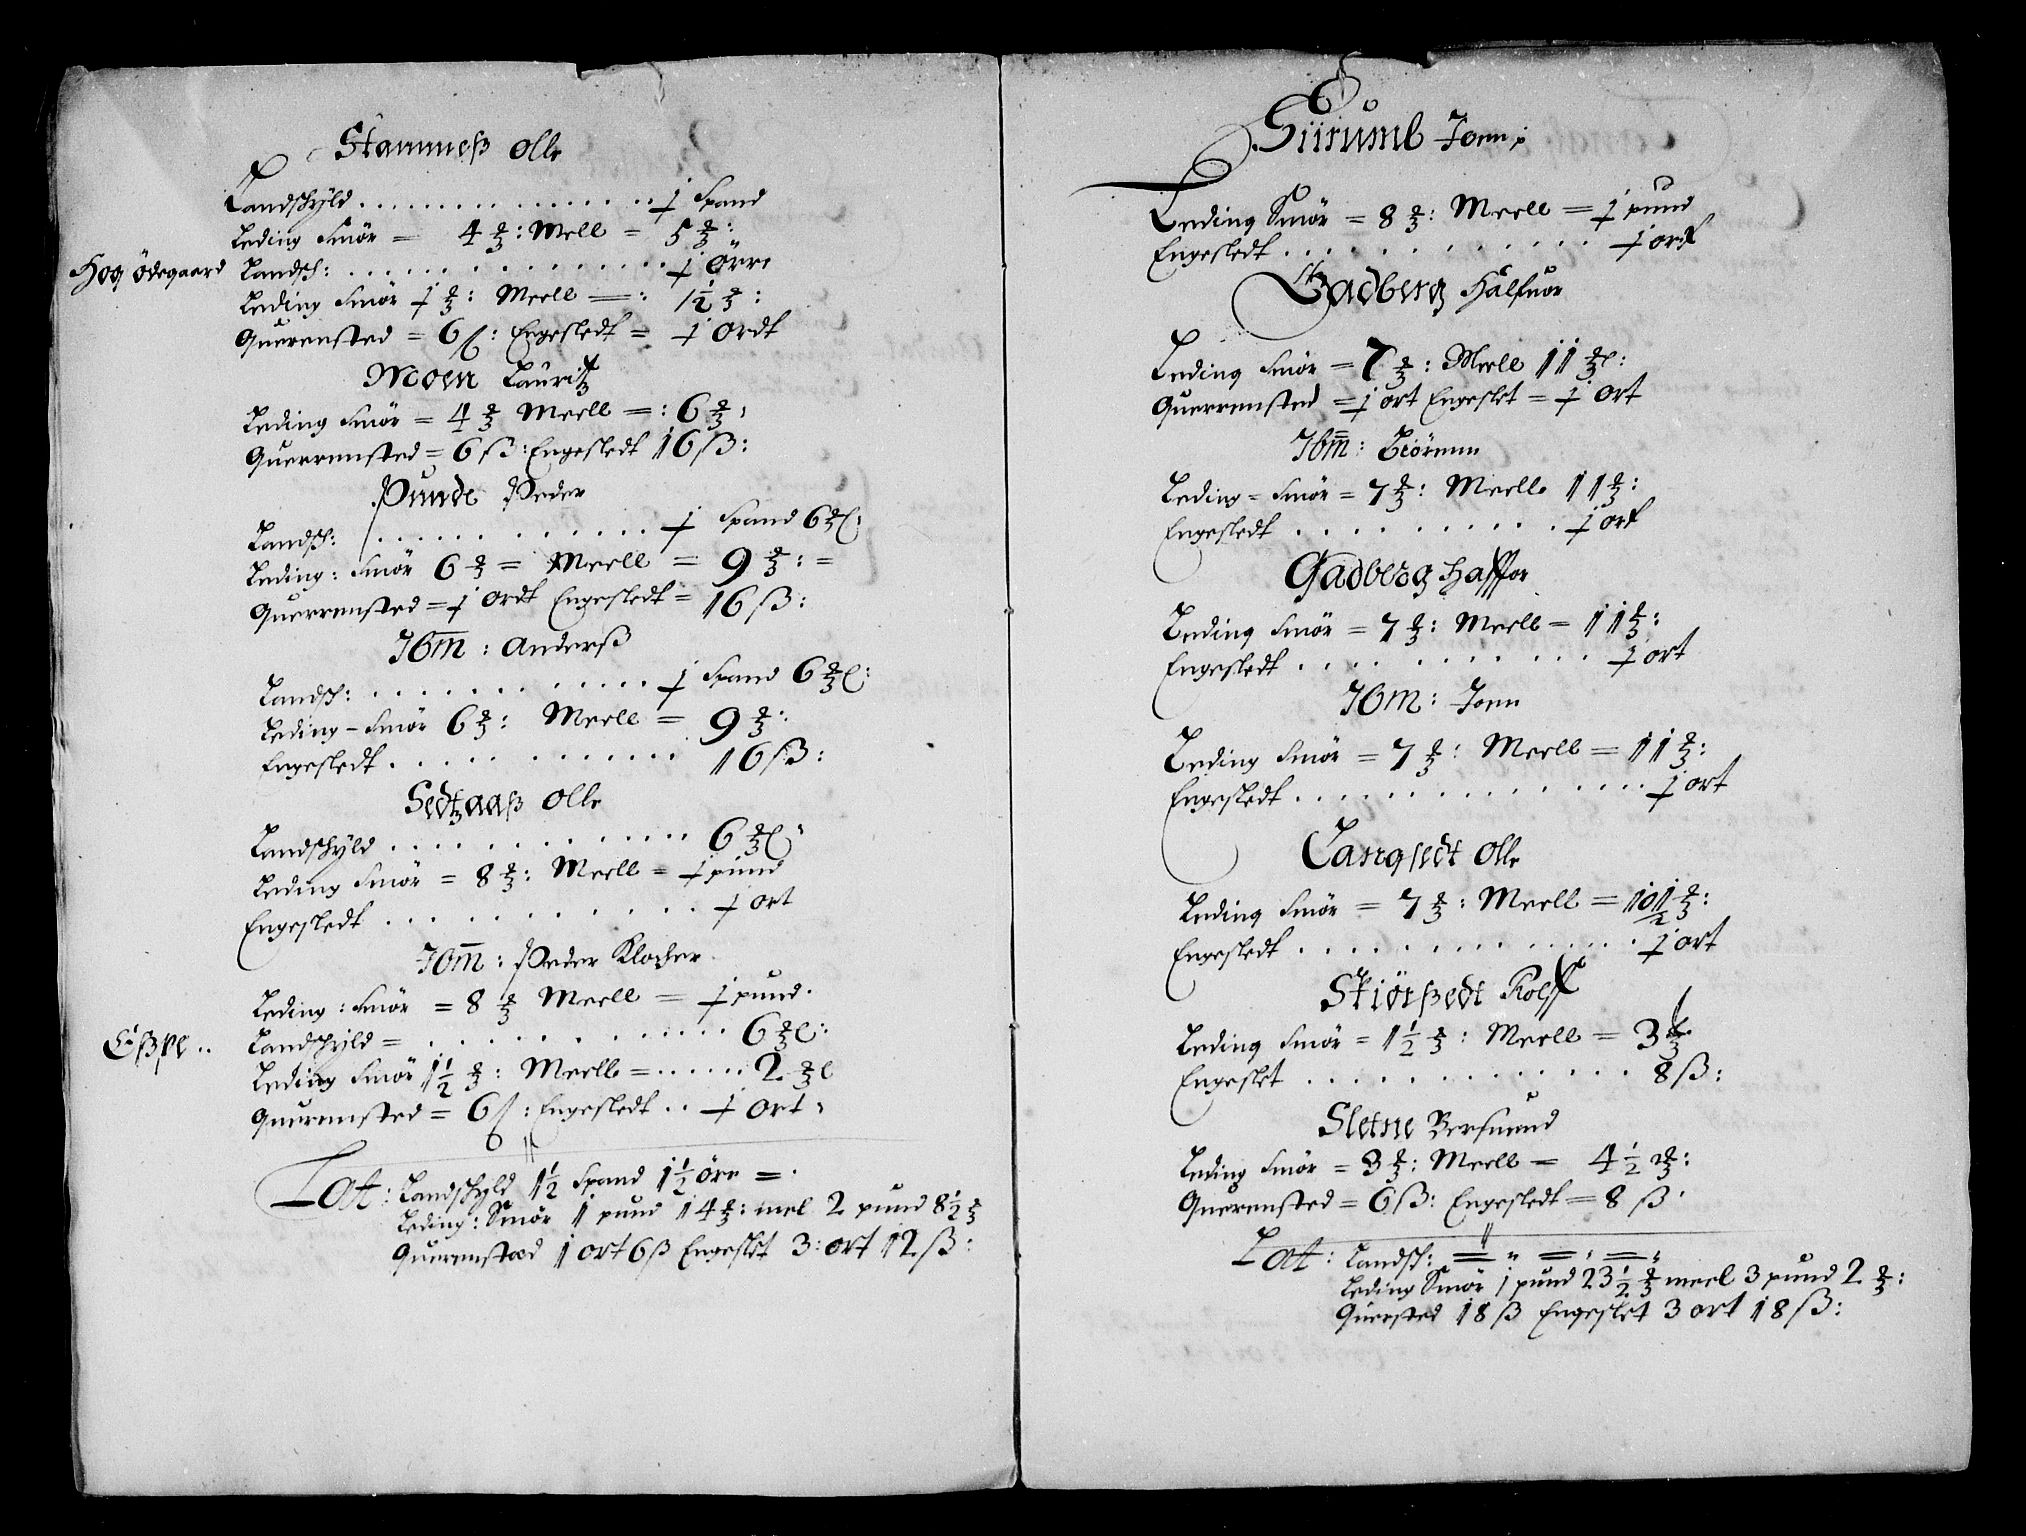 Stamneß Olle
Landschyld . . . . . . . . . . . . . . . j Spand
Leding Smör = 4 ℔: Mell = 5 ℔:
Hog ödegaard Landsch: . . . . . . . . . . . . . . j örre
Leding Smör j ℔: Meell =: 1½ ℔:
Querensted = 6 ß: Engesledt = j ordt
Moen Lauritz
Leding Smör = 4 ℔ Meell =: 6 ℔:
Querrensted = 6 ß: Engesledt 16 ß:
Punde Peder
Landsch: . . . . . . . . . . . . . j Spand 6 ℔l:
Leding: Smör 6 ℔ = Meell = 9 ℔: =
Querrensted = j ordt Engesledt = 16 ß:
Ibm: Anderß
Landsch: . . . . . . . . . . . . j Spand 6 ℔l:
Leding - Smör 6 ℔: Meell = 9 ℔:
Engesledt . . . . . . . . . . . . 16 ß:
Sedtzaaß Olle
Landschyld . . . . . . . . . . . . . 6 ℔l:
Leding Smör = 8 ℔: Meell = j pund
Engesledt . . . . . . . . . . . j ort
Ibm: Peder Klocher
Leding: Smör = 8 ℔ Meell = j pund.
Eßpe .. Landschyld = . . . . . . . . . . . 6 ℔l:
Leding Smör 1½ ℔: Meell = . . . . . . 2 ℔l
Querensted = 6 ß: Engesledt . . j ort:
Lat: Landschyld 1½ Spand 1½ öre =.
Leding: Smör 1 pund 14 ℔: mel 2 pund 8½ ℔
Querenstad 1 ort 6 ß Engeslet 3: ort 12 ß:
Siirumb Joen
Leding Smör = 8 ℔: Meell = j pund
Engesledt . . . . . . . . . . . . j ort
Gadberg Halfuor
Leding Smör = 7 ℔: Meell 11 ℔l:
Querrensted = j ort Engeslet = j ort
Ibm: Biörnnn
Leding - Smör = 7 ℔: Meell 11 ℔:
Engesledt . . . . . . . . . . j ort
Gadberg Haffor
Leding Smör = 7 ℔: Meell = 11 ℔:
Engesledt . . . . . . . . . . . j ort
Ibm: Joen
Leding Smör = 7 ℔: Meell = 11 ℔:
Engesledt . . . . . . . . . . . . . . . j ort
Langsedt Olle
Leding Smör = 7 ℔: Meell = 10½ ℔:
Engesledt . . . . . . . . . . . . . . j ort
Skiörßedt Rolff
Leding Smör = 1½ ℔: Meell = 3 ℔
Engeslet . . . . . . . . . . . . . . 8 ß:
Sletne Bersuend
Leding Smör = 3 ℔: Meell = 4½ ℔:
Querensted = 6 ß: Engesledt = 8 ß
Lat: Landsch: = " = : = "
Leding Smör 1 pund 23½ ℔ meel 3 pund 2 ℔:
Quersted 18 ß Engeslet 3 ort 18 ß: